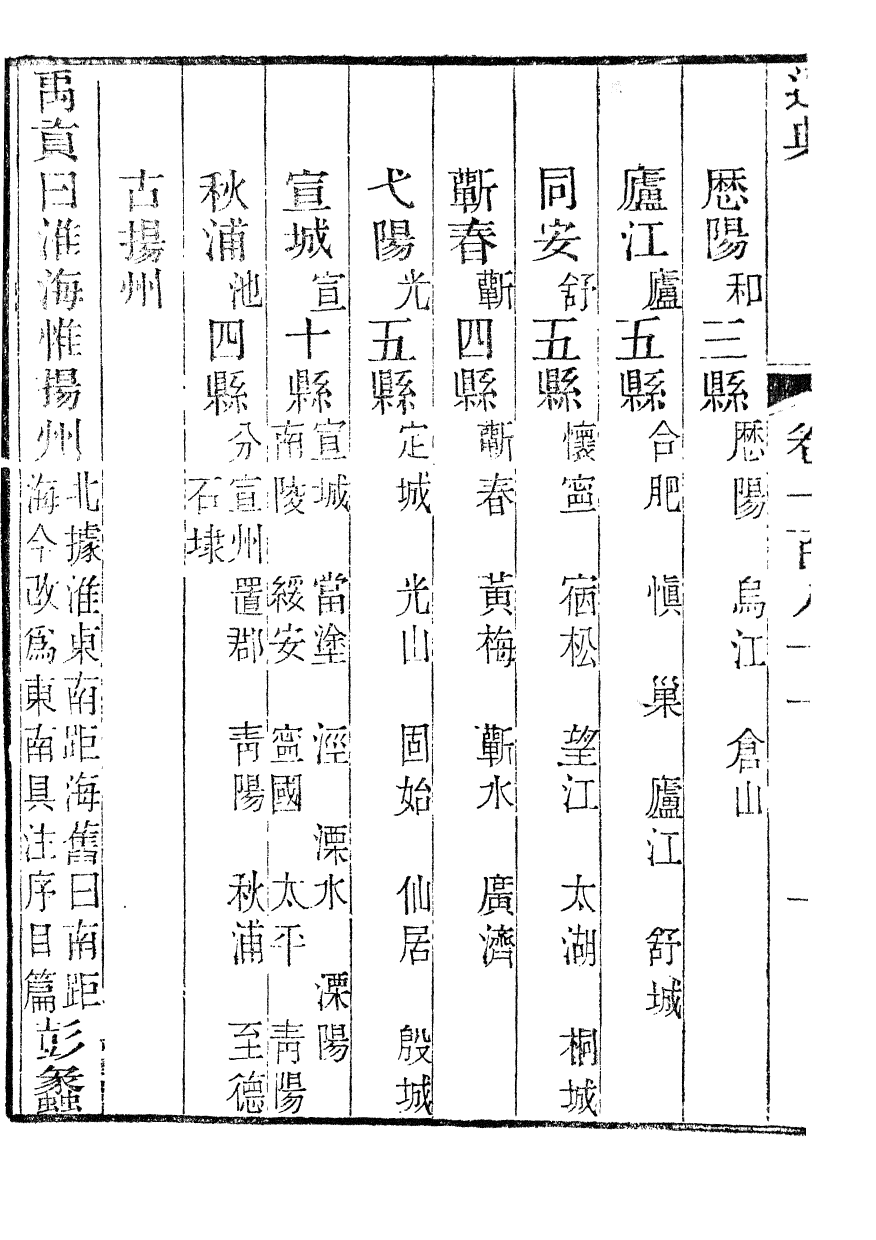 通典 卷一百八十一 一
厯陽和三縣厯陽 烏江 倉山
廬江廬五縣合肥 慎 巢 廬江 舒城
同安舒五縣懷寧 宿松 望江 太湖 桐城
蘄春蘄四縣蘄春 黃梅 蘄水 廣濟
弋陽光五縣定城 光山 固始 仙居 殷城
宣城宣十縣宣城 當塗 涇 溧水 溧陽
南陵 綏安 寧國 太平 青陽
秋浦池四縣分宣州置郡 青陽 秋浦 至德
石埭
古揚州
禹貢曰淮海惟揚州北據淮東南距海舊曰南距
海今改爲東南具注序目篇彭蠡